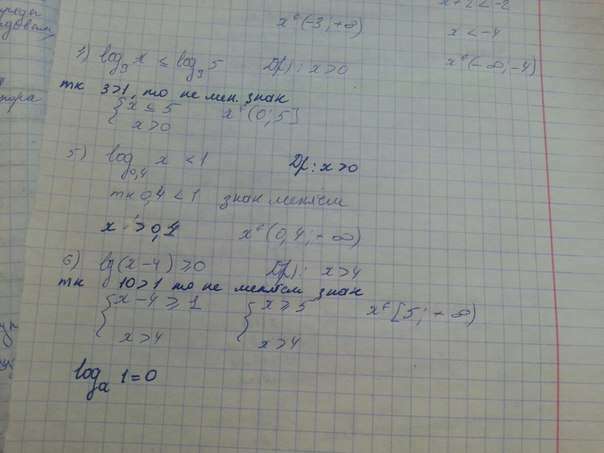 x∈(-3;+∞)
x+2<-2
x<-4
x∈(-∞;-4)
1) log₃ x ≤ log₃ 5 D(y): x>0
тк 3>1, то не мен. знак
{ x ≤ 5 x∈(0;5]
x>0
5) log₀,₄ x <1 D(y): x>0
тк 0,4 <1 знак меняем
x > 0,4 x∈(0,4;+∞)
6) lg(x-4) ≥0 D(y): x>4
тк 10>1 то не меняем знак
{ x-4 ≥ 1 { x ≥ 5 x∈[5;+∞)
x>4 x>4
logₐ 1=0